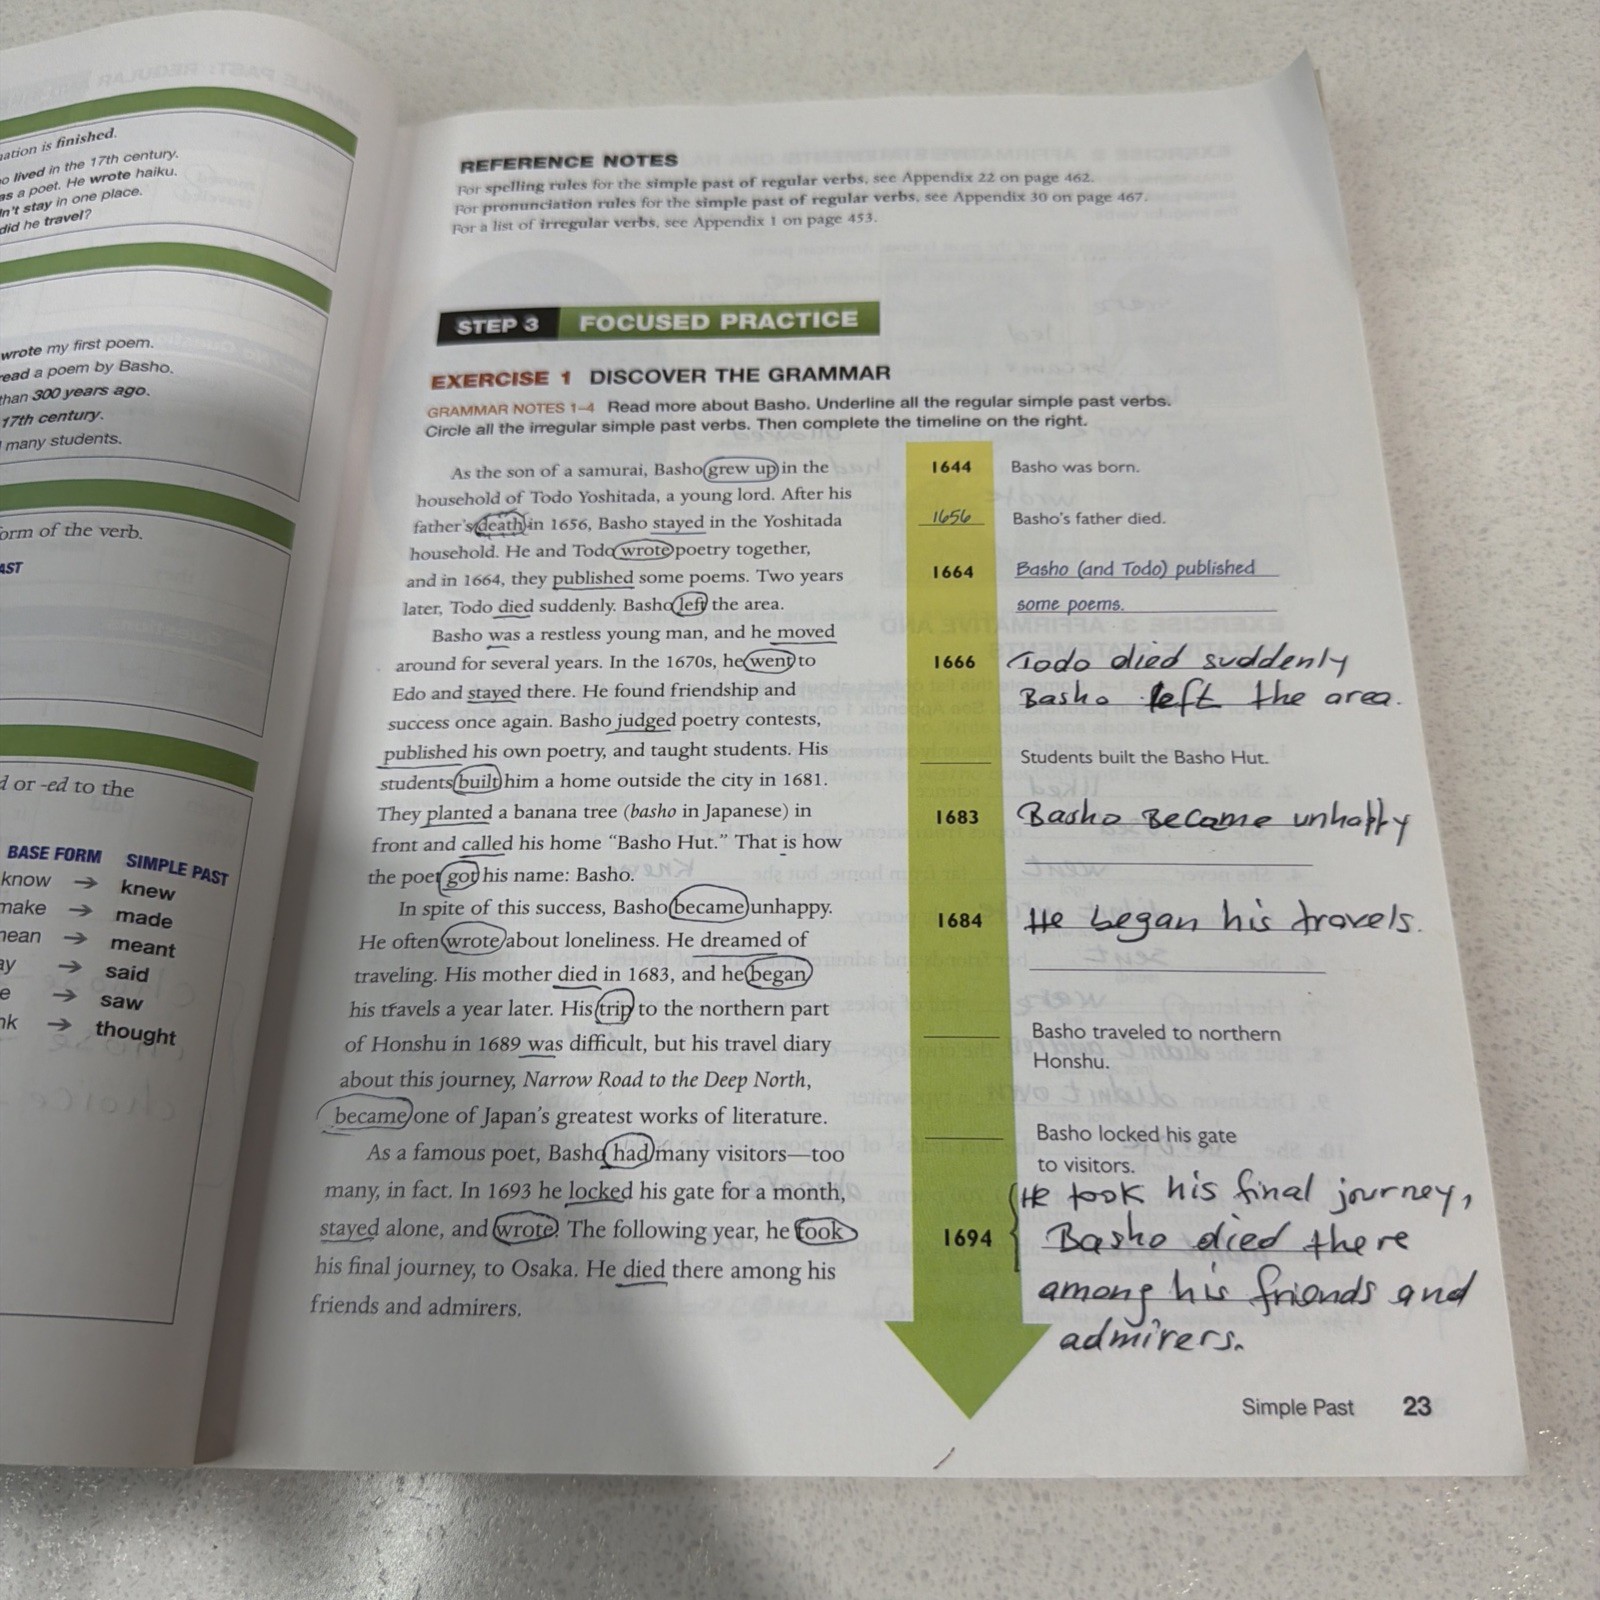 nation is finished.
o lived in the 17th century.
as a poet. He wrote haiku.
n't stay in one place.
did he travel?
wrote my first poem.
read a poem by Basho.
than 300 years ago.
17th century.
many students.
orm of the verb.
AST
d or -ed to the
BASE FORM SIMPLE PAST
know → knew
make → made
mean → meant
ay → said
e → saw
nk → thought
REFERENCE NOTES
For spelling rules for the simple past of regular verbs, see Appendix 22 on page 462.
For pronunciation rules for the simple past of regular verbs, see Appendix 30 on page 467.
For a list of irregular verbs, see Appendix 1 on page 453.
STEP 3 FOCUSED PRACTICE
EXERCISE 1 DISCOVER THE GRAMMAR
GRAMMAR NOTES 1–4 Read more about Basho. Underline all the regular simple past verbs.
Circle all the irregular simple past verbs. Then complete the timeline on the right.
As the son of a samurai, Basho grew up in the
household of Todo Yoshitada, a young lord. After his
father's death in 1656, Basho stayed in the Yoshitada
household. He and Todo wrote poetry together,
and in 1664, they published some poems. Two years
later, Todo died suddenly. Basho left the area.
Basho was a restless young man, and he moved
around for several years. In the 1670s, he went to
Edo and stayed there. He found friendship and
success once again. Basho judged poetry contests,
published his own poetry, and taught students. His
students built him a home outside the city in 1681.
They planted a banana tree (basho in Japanese) in
front and called his home "Basho Hut." That is how
the poet got his name: Basho.
In spite of this success, Basho became unhappy.
He often wrote about loneliness. He dreamed of
traveling. His mother died in 1683, and he began
his travels a year later. His trip to the northern part
of Honshu in 1689 was difficult, but his travel diary
about this journey, Narrow Road to the Deep North,
became one of Japan's greatest works of literature.
As a famous poet, Basho had many visitors—too
many, in fact. In 1693 he locked his gate for a month,
stayed alone, and wrote. The following year, he took
his final journey, to Osaka. He died there among his
friends and admirers.
1644 Basho was born.
1656 Basho's father died.
1664 Basho (and Todo) published
some poems.
1666 Todo died suddenly
Basho left the area.
Students built the Basho Hut.
1683 Basho Became unhappy
1684 He began his travels.
Basho traveled to northern
Honshu.
Basho locked his gate
to visitors.
He took his final journey,
1694 Basho died there
among his friends and
admirers.
Simple Past 23